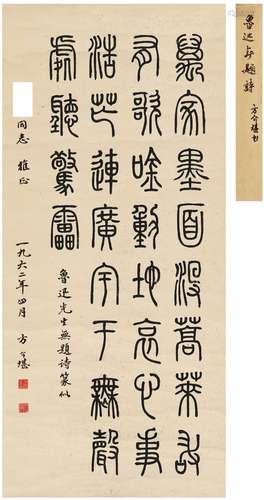 魯迅無題詩
方介堪書
萬家墨面沒蒿萊敢
有歌吟動地哀心事
浩芒連廣宇于無聲
處聽驚雷
魯迅先生無題詩篆似
同志雅正
一九六二年四月 方介堪